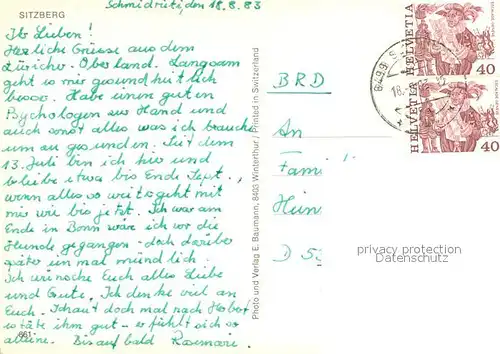 SITZBERG
Schmidrüti, den 18.8.83
Ihr Lieben!
Herzliche Grüsse aus dem
Zürcher-Oberland. Langsam
geht es mir gesundheitlich
besser. Habe einen guten
Psychologen zur Hand und
auch sonst alles was ich brauche
um zu gesunden. Seit dem
13. Juli bin ich hier und
bleibe etwa bis Ende Sept.,
wenn alles so weitergeht mit
mir wie bis jetzt. Ich war am
Ende in Bonn wäre ich vor die
Hunde gegangen - doch darüber
später einmal mündlich.
Ich wünsche Euch alles Liebe
und Gute. Ich denke viel an
Euch. Schaut doch mal nach Hubert
es täte ihm gut - er fühlt sich so
alleine. Bis auf bald Rosemarie.
661
Photo und Verlag E. Baumann, 8403 Winterthur / Printed in Switzerland
BRD
An
Fami
Hein
D 5
HELVETIA 40
HELVETIA 40
8499
18.
privacy protection